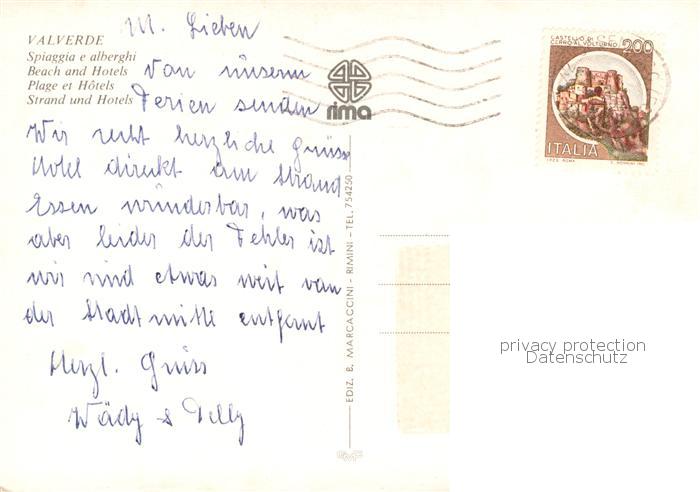 VALVERDE
Spiaggia e alberghi
Beach and Hotels
Plage et Hôtels
Strand und Hotels
M. Lieben
Von unseren
Ferien senden
Wir recht herzliche Grüsse
Hotel direkt am Strand
Essen wunderbar, was
aber leider der Fehler ist
wir sind etwas weit van
der Stadtmitte entfernt
Herzl. Grüss
Wädy & Nelly
rima
EDIZ. B. MARCACCINI - RIMINI - TEL. 754250
CASTELLO DI
CERRO AL VOLTURNO
200
ITALIA
I.P.Z.S. ROMA
privacy protection
Datenschutz